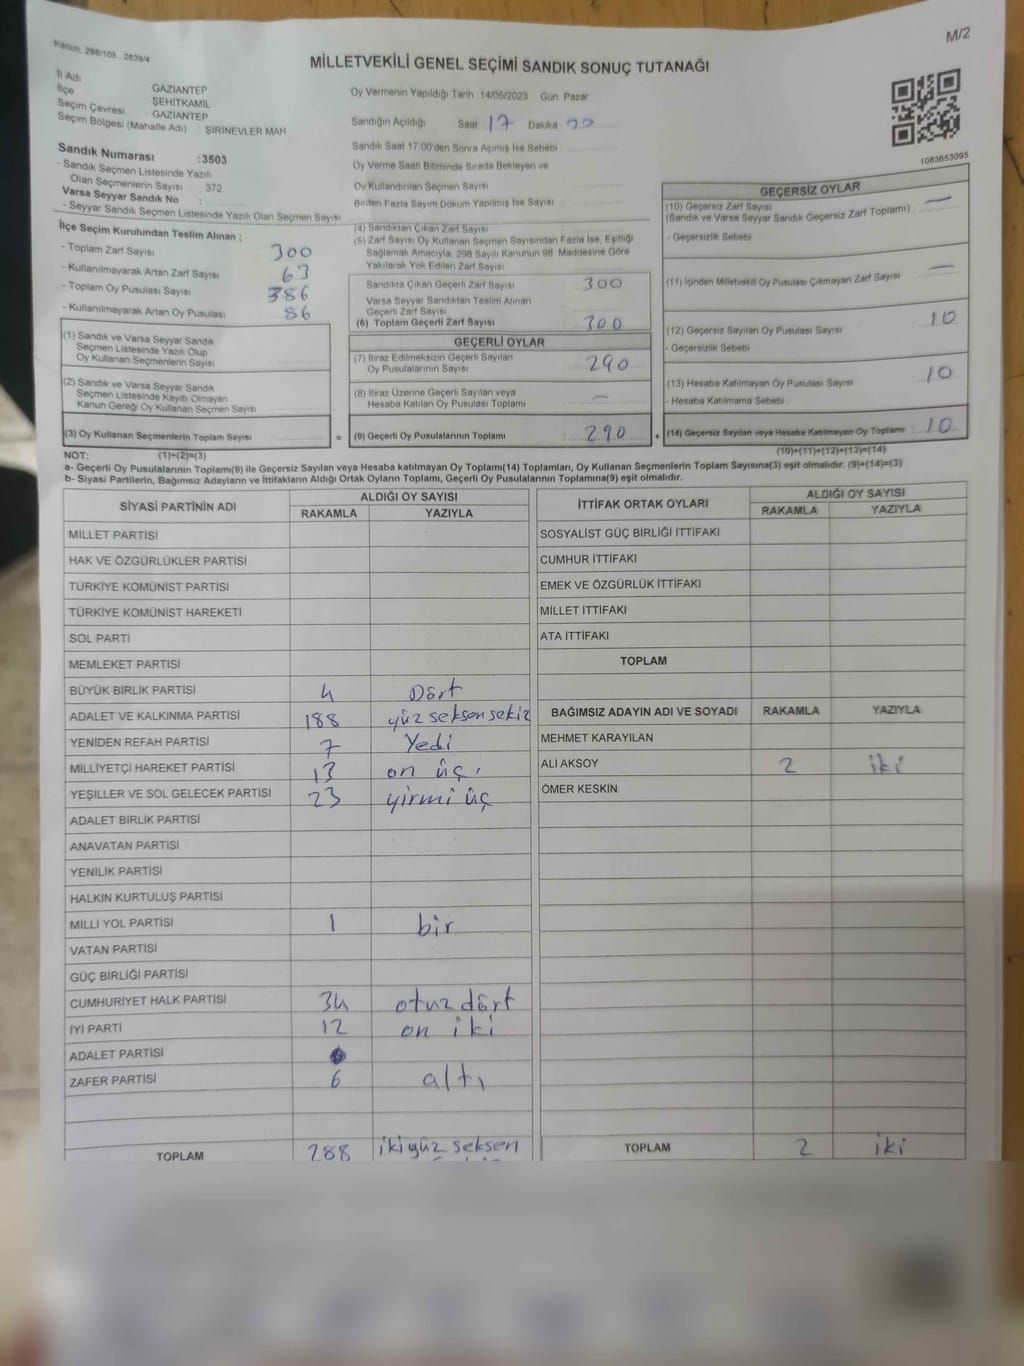 Kanun: 298/105 , 2839/4
M/2
MİLLETVEKİLİ GENEL SEÇİMİ SANDIK SONUÇ TUTANAĞI
İl Adı GAZIANTEP
İlçe ŞEHİTKAMİL
Seçim Çevresi : GAZIANTEP
Seçim Bölgesi (Mahalle Adı) : ŞIRINEVLER MAH
Sandık Numarası :3503
- Sandık Seçmen Listesinde Yazılı
Olan Seçmenlerin Sayısı : 372
Varsa Seyyar Sandık No :
- Seyyar Sandık Seçmen Listesinde Yazılı Olan Seçmen Sayısı
Oy Vermenin Yapıldığı Tarih : 14/05/2023 Gün: Pazar
Sandığın Açıldığı Saat 17 Dakika
Sandık Saat 17.00'den Sonra Açımış İse Sebebi
Oy Verme Saati Bitiminde Sırada Bekleyen ve
Oy Kullandırılan Seçmen Sayısı
Birden Fazla Sayım Döküm Yapılmış İse Sayısı
1083653095
İlçe Seçim Kurulundan Teslim Alınan ;
- Toplam Zarf Sayısı 300
- Kullanılmayarak Artan Zarf Sayısı 63
- Toplam Oy Pusulası Sayısı 386
- Kullanılmayarak Artan Oy Pusulası 86
(1) Sandık ve Varsa Seyyar Sandık
Seçmen Listesinde Yazılı Olup
Oy Kullanan Seçmenlerin Sayısı
(2) Sandık ve Varsa Seyyar Sandık
Seçmen Listesinde Kayıtlı Olmayan
Kanun Gereği Oy Kullanan Seçmen Sayısı
(3) Oy Kullanan Seçmenlerin Toplam Sayısı =
(4) Sandıktan Çıkan Zarf Sayısı
(5) Zarf Sayısı Oy Kullanan Seçmen Sayısından Fazla İse, Eşitliği
Sağlamak Amacıyla, 298 Sayılı Kanunun 98. Maddesine Göre
Yakılarak Yok Edilen Zarf Sayısı
Sandıkta Çıkan Geçerli Zarf Sayısı 300
Varsa Seyyar Sandıktan Teslim Alınan
Geçerli Zarf Sayısı
(6) Toplam Geçerli Zarf Sayısı 300
GEÇERLİ OYLAR
(7) İtiraz Edilmeksizin Geçerli Sayılan
Oy Pusulalarının Sayısı 290
(8) İtiraz Üzerine Geçerli Sayılan veya
Hesaba Katılan Oy Pusulası Toplamı —
(9) Geçerli Oy Pusulalarının Toplamı : 290 +
GEÇERSİZ OYLAR
(10) Geçersiz Zarf Sayısı
(Sandık ve Varsa Seyyar Sandık Geçersiz Zarf Toplamı) : —
- Geçersizlik Sebebi
(11) İçinden Milletvekili Oy Pusulası Çıkmayan Zarf Sayısı —
(12) Geçersiz Sayılan Oy Pusulası Sayısı 10
- Geçersizlik Sebebi
(13) Hesaba Katılmayan Oy Pusulası Sayısı 10
- Hesaba Katılmama Sebebi
(14) Geçersiz Sayılan veya Hesaba Katılmayan Oy Toplamı : 10
NOT: (1)+(2)=(3) (10)+(11)+(12)+(13)=(14)
a- Geçerli Oy Pusulalarının Toplamı(9) ile Geçersiz Sayılan veya Hesaba katılmayan Oy Toplamı(14) Toplamları, Oy Kullanan Seçmenlerin Toplam Sayısına(3) eşit olmalıdır. (9)+(14)=(3)
b- Siyasi Partilerin, Bağımsız Adayların ve İttifakların Aldığı Ortak Oyların Toplamı, Geçerli Oy Pusulalarının Toplamına(9) eşit olmalıdır.
SİYASİ PARTİNİN ADI ALDIĞI OY SAYISI
RAKAMLA YAZIYLA
MİLLET PARTİSİ
HAK VE ÖZGÜRLÜKLER PARTİSİ
TÜRKİYE KOMÜNİST PARTİSİ
TÜRKİYE KOMÜNİST HAREKETİ
SOL PARTİ
MEMLEKET PARTİSİ
BÜYÜK BİRLİK PARTİSİ 4 Dört
ADALET VE KALKINMA PARTİSİ 188 yüz seksen sekiz
YENİDEN REFAH PARTİSİ 7 Yedi
MİLLİYETÇİ HAREKET PARTİSİ 13 on üç
YEŞİLLER VE SOL GELECEK PARTİSİ 23 yirmi üç
ADALET BİRLİK PARTİSİ
ANAVATAN PARTİSİ
YENİLİK PARTİSİ
HALKIN KURTULUŞ PARTİSİ
MİLLİ YOL PARTİSİ 1 bir
VATAN PARTİSİ
GÜÇ BİRLİĞİ PARTİSİ
CUMHURİYET HALK PARTİSİ 34 otuz dört
İYİ PARTİ 12 on iki
ADALET PARTİSİ
ZAFER PARTİSİ 6 altı
TOPLAM 288 iki yüz seksen
İTTİFAK ORTAK OYLARI ALDIĞI OY SAYISI
RAKAMLA YAZIYLA
SOSYALİST GÜÇ BİRLİĞİ İTTİFAKI
CUMHUR İTTİFAKI
EMEK VE ÖZGÜRLÜK İTTİFAKI
MİLLET İTTİFAKI
ATA İTTİFAKI
TOPLAM
BAĞIMSIZ ADAYIN ADI VE SOYADI RAKAMLA YAZIYLA
MEHMET KARAYILAN
ALİ AKSOY 2 iki
ÖMER KESKİN
TOPLAM 2 iki